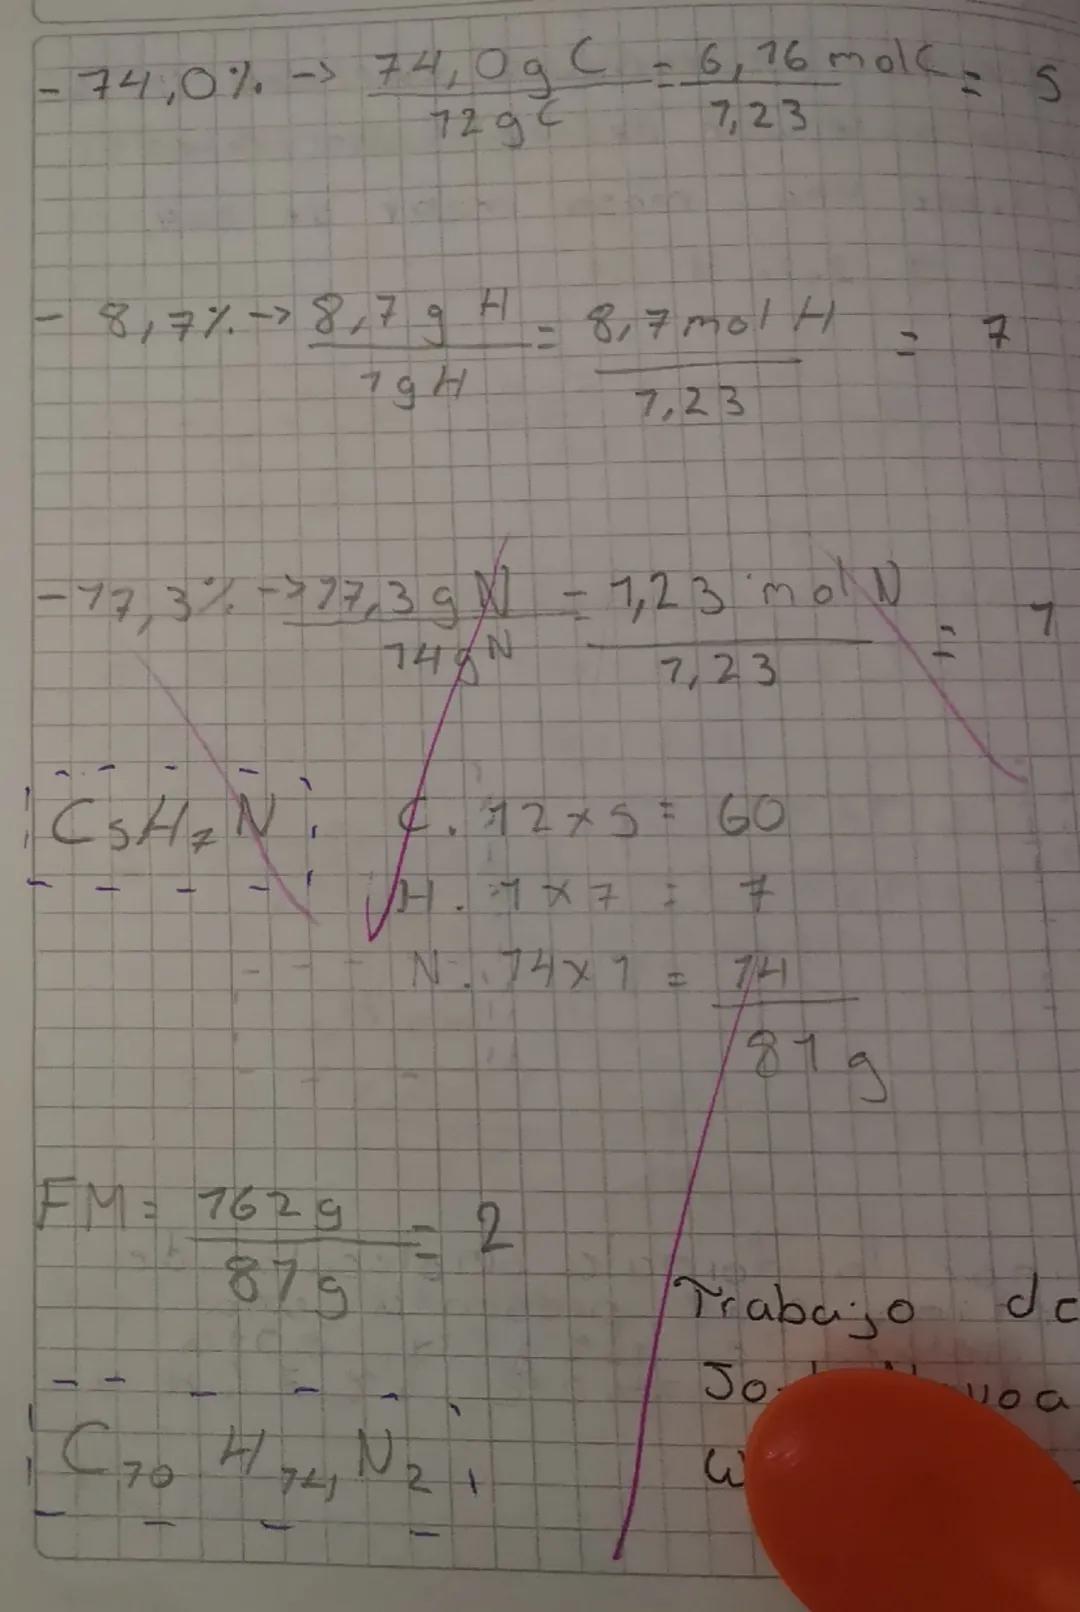 - 74,0% -> 74,0g C / 12gC = 6,16 molC / 1,23 = 5
- 8,7% -> 8,7 g H / 1gH = 8,7 mol H / 1,23 = 7
- 17,3% -> 17,3 g N / 14gN = 1,23 mol N / 1,23 = 1
C5H7N C. 12 x 5 = 60
H. 1 x 7 = 7
N. 14 x 1 = 14
81g
FM = 162g / 81g = 2
Trabajo de
C10 H14 N2